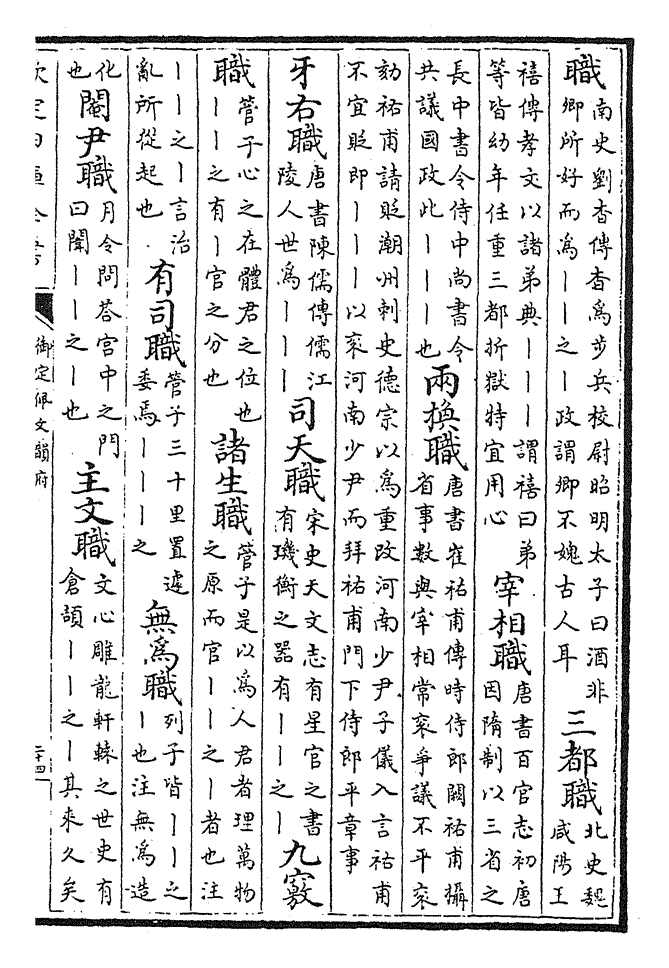 職南史劉杳傳杳為步兵校尉昭明太子曰酒非卿所好而為丨丨之丨政謂卿不媿古人耳三都職北史魏咸陽王
禧傳孝文以諸弟典丨丨丨謂禧曰弟等皆幼年任重三都折獄特宜用心宰相職唐書百官志初唐因隋制以三省之
長中書令侍中尚書令共議國政此丨丨丨也兩換職唐書崔祐甫傳時侍郎闕祐甫攝省事數與宰相常衮爭議不平衮
劾祐甫請貶潮州刺史德宗以為重改河南少尹子儀入言祐甫不宜貶即丨丨丨以衮河南少尹而拜祐甫門下侍郎平章事
牙右職唐書陳儒傳儒江陵人世為丨丨丨司天職宋史天文志有星官之書有璣衡之器有丨丨之丨九竅
職管子心之在體君之位也丨丨之有丨官之分也諸生職管子是以為人君者理萬物之原而官丨丨之丨者也注
丨丨之丨言治亂所從起也有司職管子三十里置遽委焉丨丨丨之無為職列子皆丨丨之丨也注無為造
化也閹尹職月令問荅宮中之門曰闈丨丨之丨也主文職文心雕龍軒轅之世史有倉頡丨丨之丨其來久矣
欽定四庫全書
御定佩文韻府
二十四